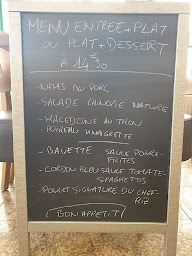 MENU ENTREE+PLAT
OU PLAT+DESSERT
A 14€90
-NEMS AU PORC
-SALADE CHINOISE NATURE
-MACEDOINE AU THON
POIREAU VINAIGRETTE
-BAVETTE SAUCE POIVRE-
FRITES
-CORDON BLEU SAUCE TOMATE-
SPAGHETTIS
-POULET SIGNATURE DU CHEF-
RIZ
BON APPET-T!